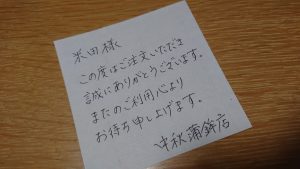 米田様
この度はご注文いただき
誠にありがとうございます。
またのご利用心より
お待ち申し上げます。
中秋蒲鉾店